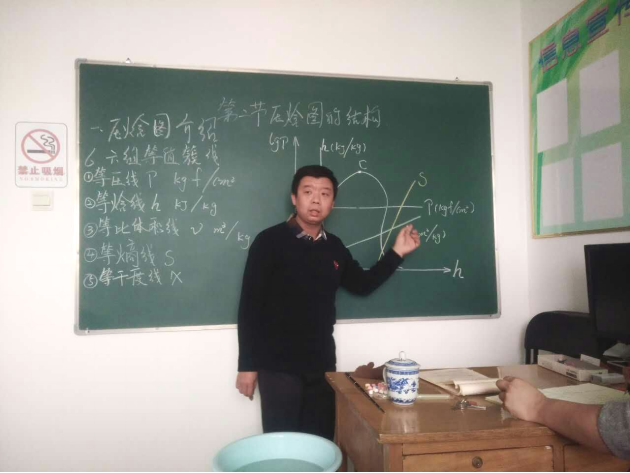 禁止吸烟
第二节压焓图的结构
一.压焓图介绍
6六组等值簇线
①等压线 P kgf/cm²
②等焓线 h KJ/kg
③等比体积线 υ m³/kg
④等熵线 S
⑤等干度线 X
lgP
h(KJ/kg)
C
S
P(kgf/cm²)
m³/kg)
h